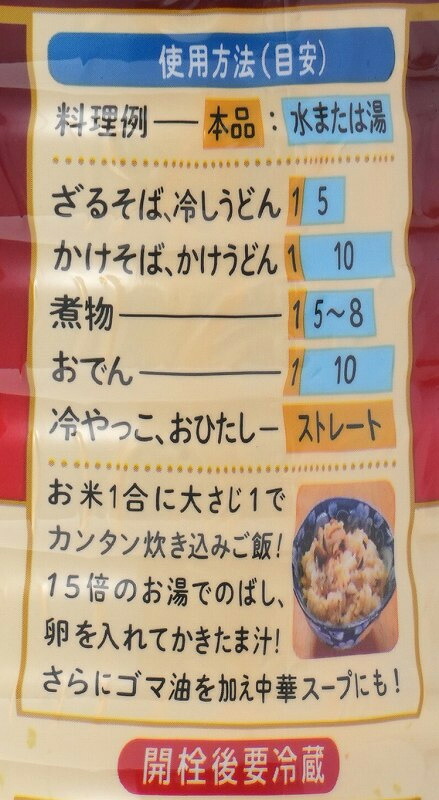 使用方法(目安)
料理例 ― 本品 : 水または湯
ざるそば、冷しうどん 1 5
かけそば、かけうどん 1 10
煮物 ― 1 5～8
おでん ― 1 10
冷やっこ、おひたし ― ストレート
お米1合に大さじ1で
カンタン炊き込みご飯!
15倍のお湯でのばし、
卵を入れてかきたま汁!
さらにゴマ油を加え中華スープにも!
開栓後要冷蔵